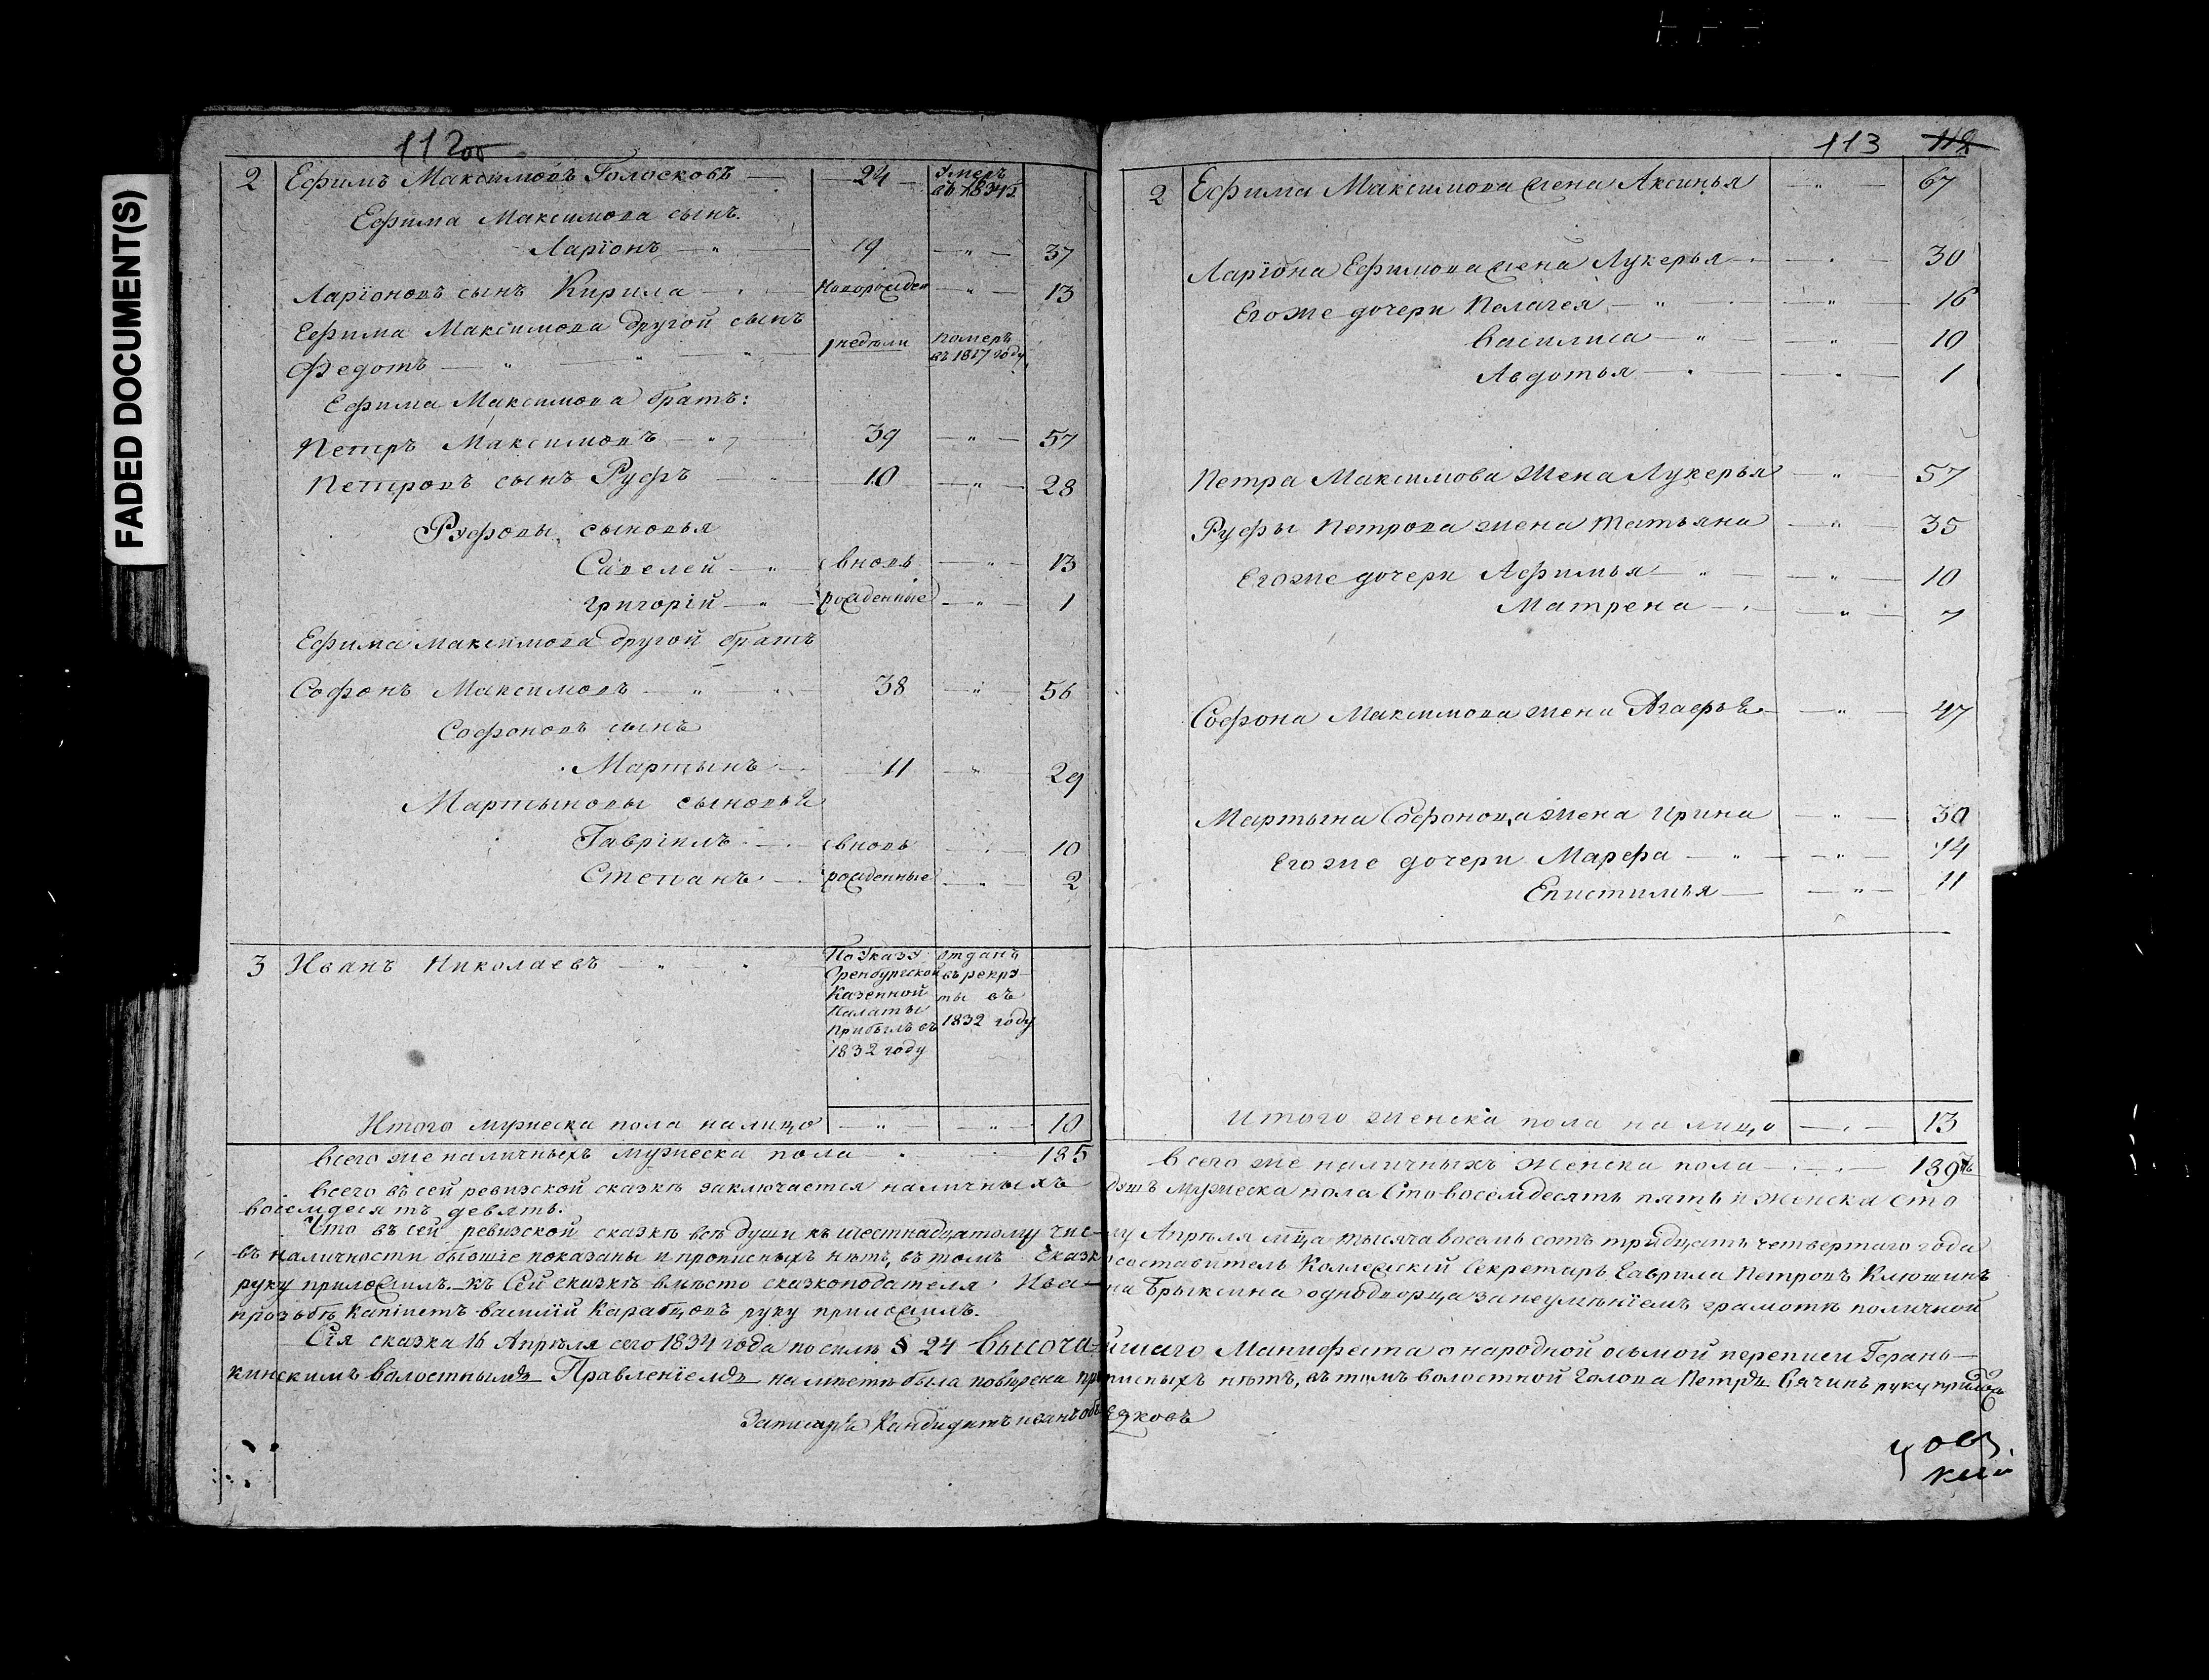 FADED DOCUMENT(S)
112об
2 Ефимъ Максимовъ Голосковъ 24 Умеръ
въ 1834
Ефима Максимова сынъ.
Ларіонъ 19 37
Ларіоновъ сынъ Кирила Новорожден 13
Ефима Максимова другой сынъ
Федотъ 1 недели померъ
въ 1817 году
Ефима Максимова братъ:
Петръ Максимовъ 39 57
Петровъ сынъ Руфъ 10 28
Руфовы сыновья
Савелей вновь 13
Григорій рожденные 1
Ефима Максимова другой братъ
Софонъ Максимовъ 38 56
Софоновъ сынъ
Мартынъ 11 29
Мартыновы сыновья
Гавріилъ вновь 10
Степанъ рожденные 2
3 Иванъ Николаевъ По Указу
Оренбургской
Казенной
Палаты
прибылъ въ
1832 году
отданъ
въ рекру-
ты въ
1832 году
Итого мужеска пола на лицо 10
всего же наличныхъ мужеска пола 185
113 112
2 Ефима Максимова жена Аксинья 67
Ларіона Ефимова жена Лукерья 30
Егоже дочери Пелагея 16
Василиса 10
Авдотья 1
Петра Максимова жена Лукерья 57
Руфы Петрова жена Татьяна 35
Егоже дочери Афимья 10
Матрена 7
Софона Максимова жена Агафья 47
Мартына Софонова жена Ирина 30
Егоже дочери Марфа 14
Епистимья 11
Итого женска пола на лицо 13
Всего же наличныхъ женска пола 189
всего въ сей ревизской сказкѣ заключается наличныхъ душъ мужеска пола Сто восемдесять пять и женска сто
восемдесятъ девять.
Что въ сей ревизской сказкѣ всѣ души къ шестнадцатому числу Апрѣля мца тысяча восемь сотъ тридцать четвертаго года
въ наличности бывшіе показаны и прописныхъ нѣтъ, въ томъ Сказкосоставитель Коллежскій Секретарь Гаврила Петровъ Клюшинъ
руку приложилъ. къ Сей сказкѣ вмѣсто сказкоподателя Ивана Брыксина однодворца за неумѣніемъ грамотѣ по личной
прозьбѣ Василій Карабцовъ руку приложилъ.
Сія сказка 16 Апрѣля сего 1834 года по силѣ § 24 Высочайшаго Манифеста о народной осьмой переписи Герань-
кинскимъ волостнымъ Правленіемъ на мѣстѣ была повѣрена прописныхъ нѣтъ, въ томъ волостной Голова Петръ Сячинъ руку приложилъ
Кандидатъ Иванъ Объедковъ